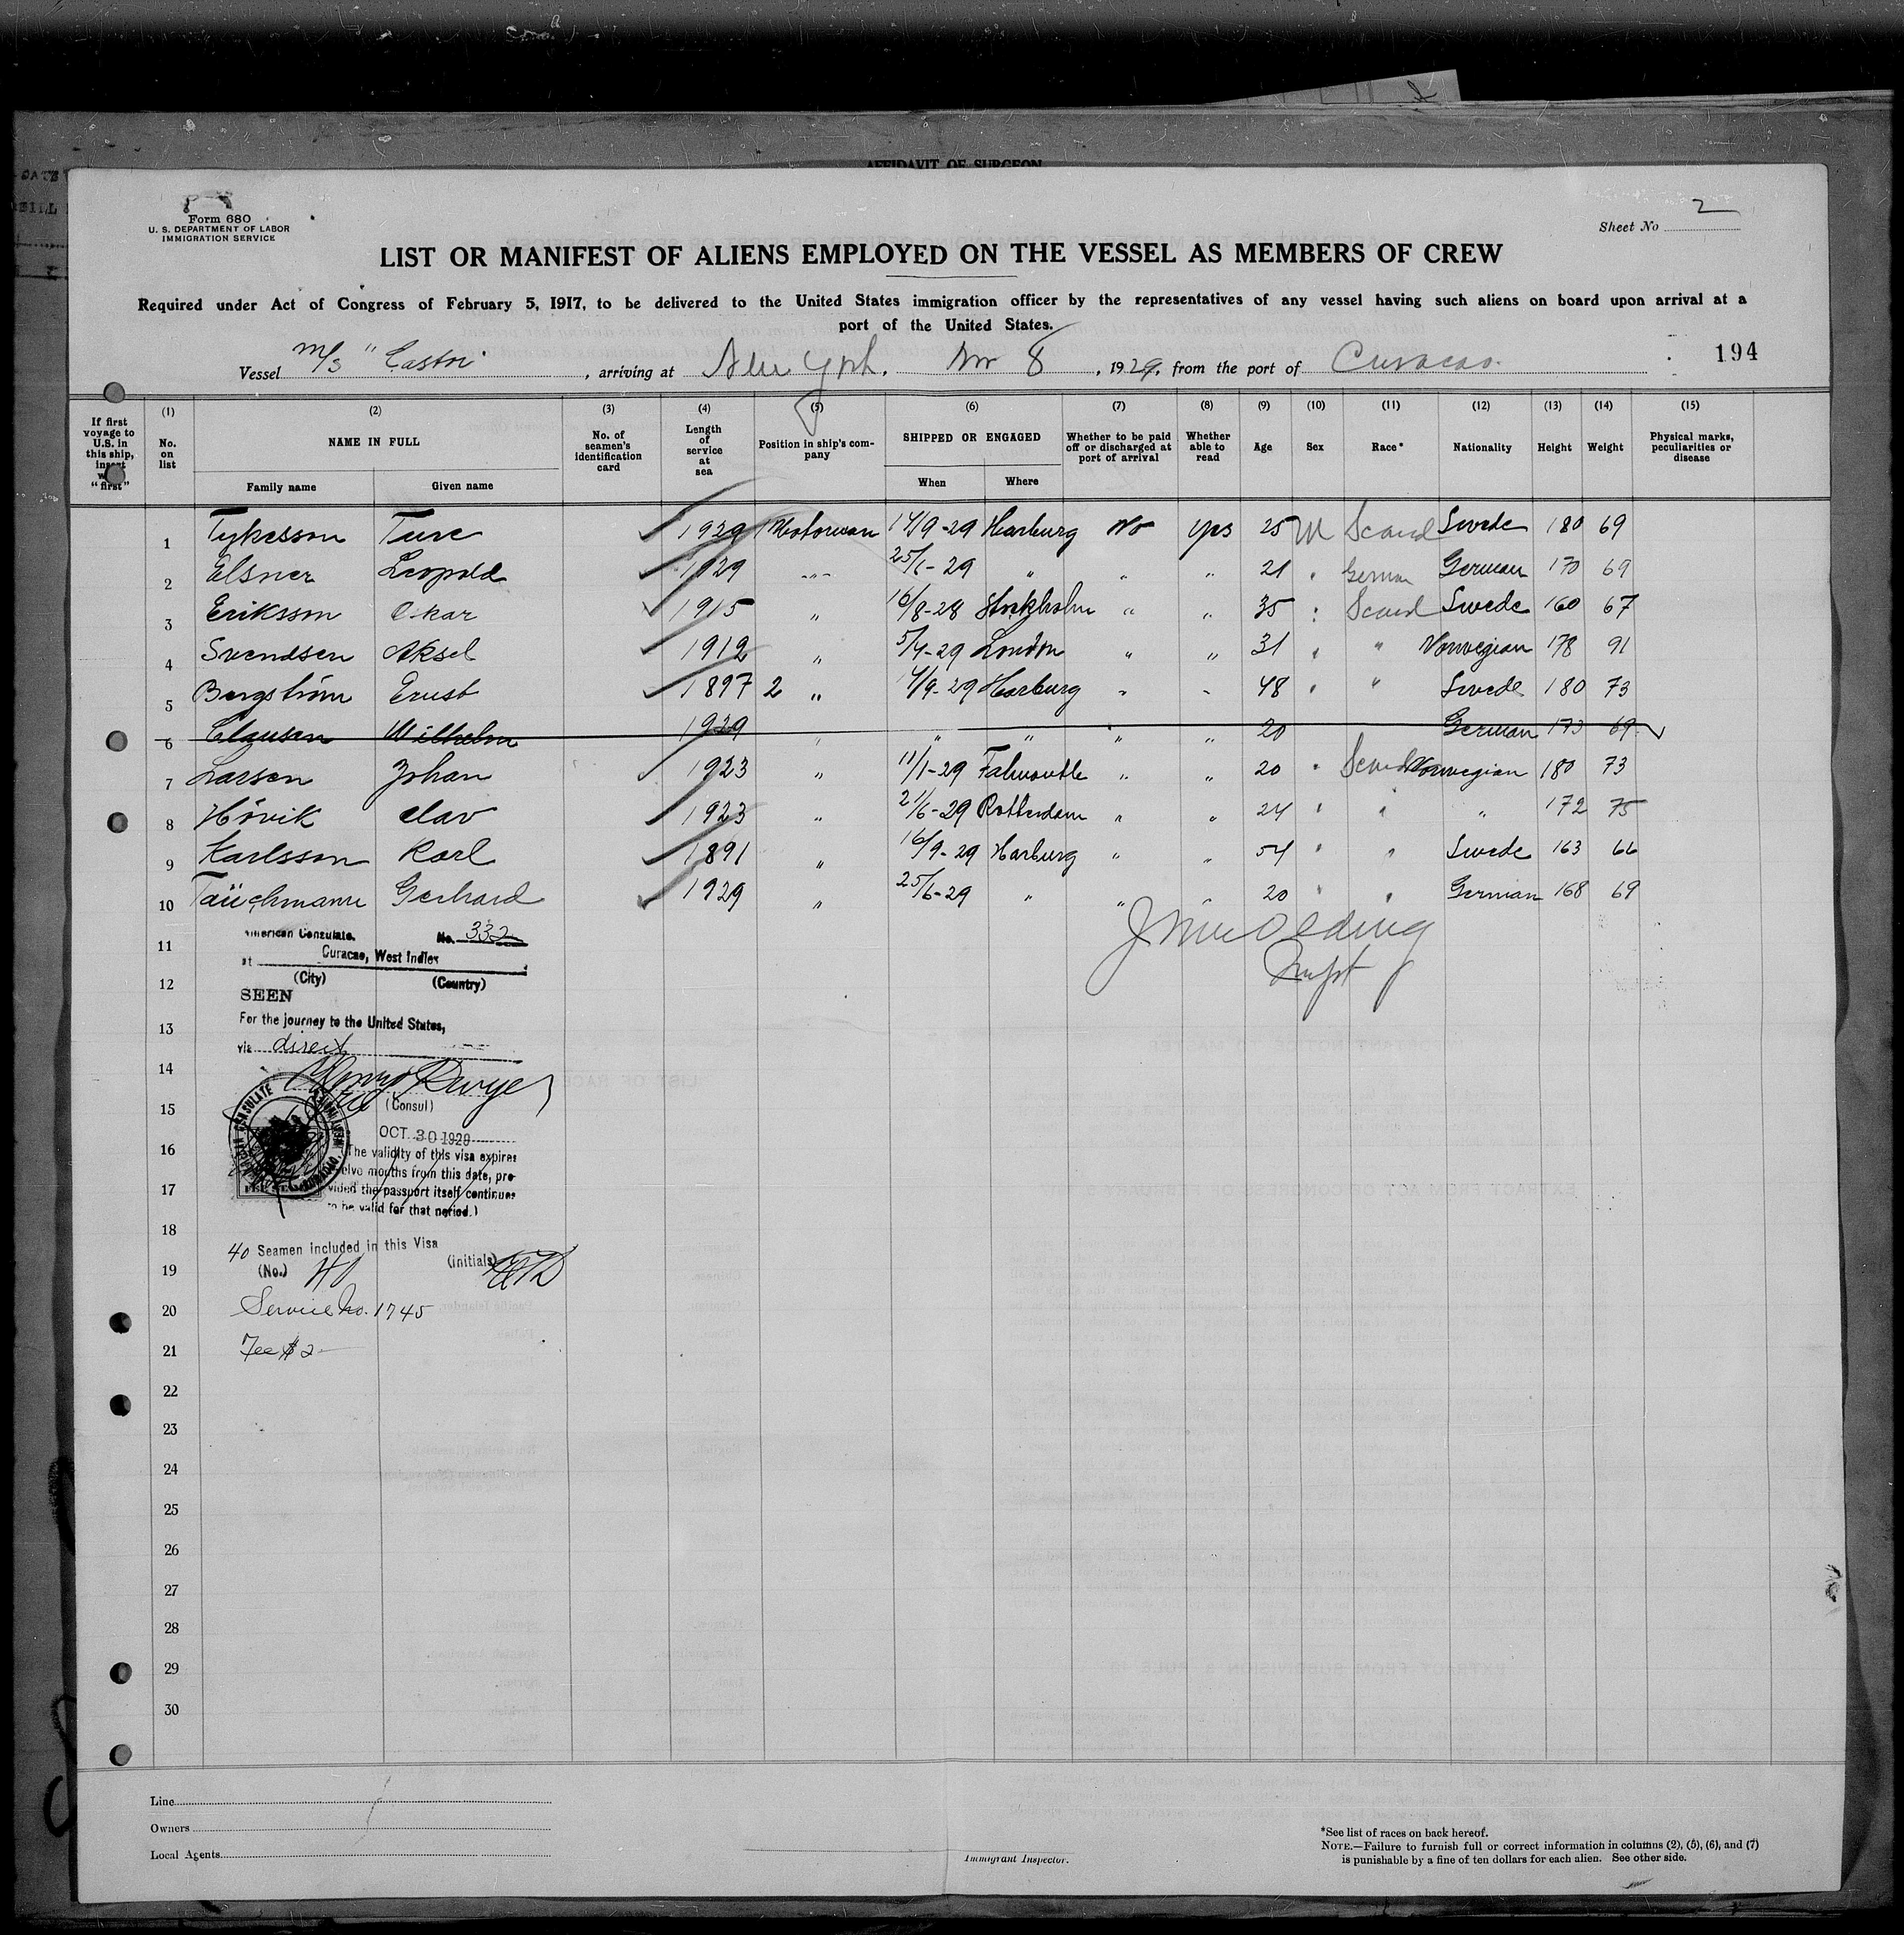 AFFIDAVIT OF SURGEON
Form 680
U. S. DEPARTMENT OF LABOR
IMMIGRATION SERVICE
Sheet No 2
LIST OR MANIFEST OF ALIENS EMPLOYED ON THE VESSEL AS MEMBERS OF CREW
Required under Act of Congress of February 5, 1917, to be delivered to the United States immigration officer by the representatives of any vessel having such aliens on board upon arrival at a
port of the United States.
Vessel m/s "Castor", arriving at New York. Nov 8, 1929, from the port of Curacao. 194
If first voyage to U.S. in this ship, insert "first"
(1) No. on list
(2) NAME IN FULL Family name Given name
(3) No. of seamen's identification card
(4) Length of service at sea
(5) Position in ship's company
(6) SHIPPED OR ENGAGED When Where
(7) Whether to be paid off or discharged at port of arrival
(8) Whether able to read
(9) Age
(10) Sex
(11) Race*
(12) Nationality
(13) Height
(14) Weight
(15) Physical marks, peculiarities or disease
1 Tykesson Ture 1929 Motorman 14/9-29 Harburg No yes 25 M Scand Swede 180 69
2 Elsner Leopold 1929 " 25/6-29 " " " 21 " German German 170 69
3 Eriksson Oskar 1915 " 16/8-28 Stockholm " " 35 " Scand Swede 160 67
4 Svendsen Aksel 1912 " 5/4-29 London " " 31 " " Norwegian 178 91
5 Bergström Ernst 1897 2 " 14/9-29 Harburg " " 48 " " Swede 180 73
6 Clausen Wilhelm 1929 " " " " " 20 German 173 69
7 Larsen Johan 1923 " 11/1-29 Falmouth " " 20 " Scand Norwegian 180 73
8 Hövik Olav 1923 " 21/6-29 Rotterdam " " 24 " " " 172 75
9 Karlsson Karl 1891 " 16/9-29 Harburg " " 54 " " Swede 163 66
10 Taüchmann Gerhard 1929 " 25/6-29 " " " 20 " " German 168 69
11
12
13
14
15
16
17
18
19
20
21
22
23
24
25
26
27
28
29
30
American Consulate. No. 332
at Curacao, West Indies
(City) (Country)
SEEN
For the journey to the United States,
via direct
(Consul)
OCT 30 1929
The validity of this visa expires
twelve months from this date, pro-
vided the passport itself continues
to be valid for that period.)
40 Seamen included in this Visa
(No.) (initials)
Service No. 1745
Fee $2
Line
Owners
Local Agents
Immigrant Inspector.
*See list of races on back hereof.
NOTE.—Failure to furnish full or correct information in columns (2), (5), (6), and (7)
is punishable by a fine of ten dollars for each alien. See other side.